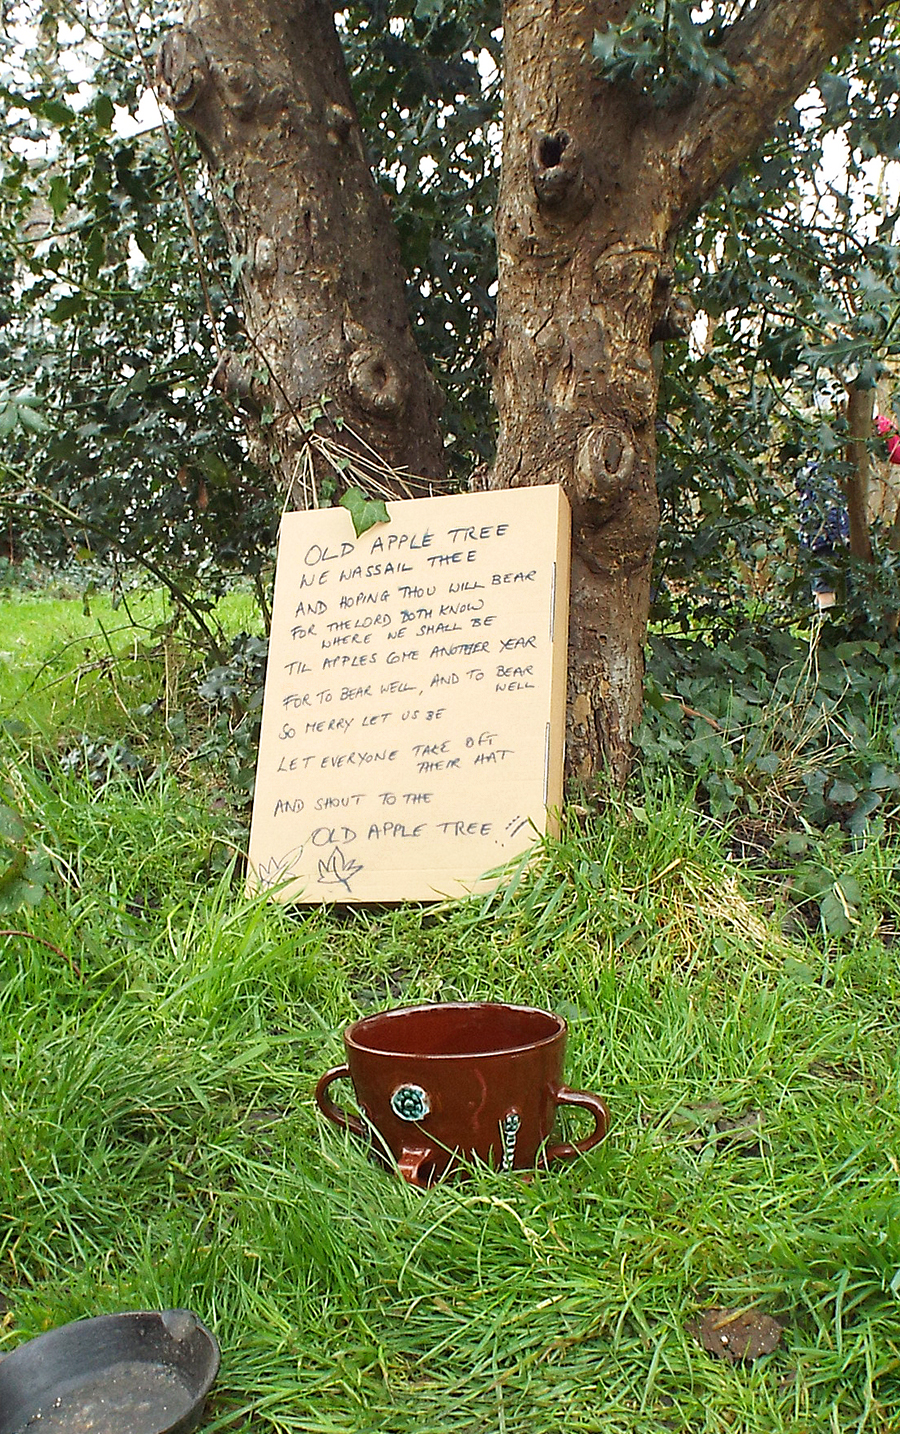 OLD APPLE TREE
WE WASSAIL THEE
AND HOPING THOU WILL BEAR
FOR THE LORD DOTH KNOW
WHERE WE SHALL BE
TIL APPLES COME ANOTHER YEAR
FOR TO BEAR WELL, AND TO BEAR
WELL
SO MERRY LET US BE
LET EVERYONE TAKE OFF
THEIR HAT
AND SHOUT TO THE
OLD APPLE TREE !!